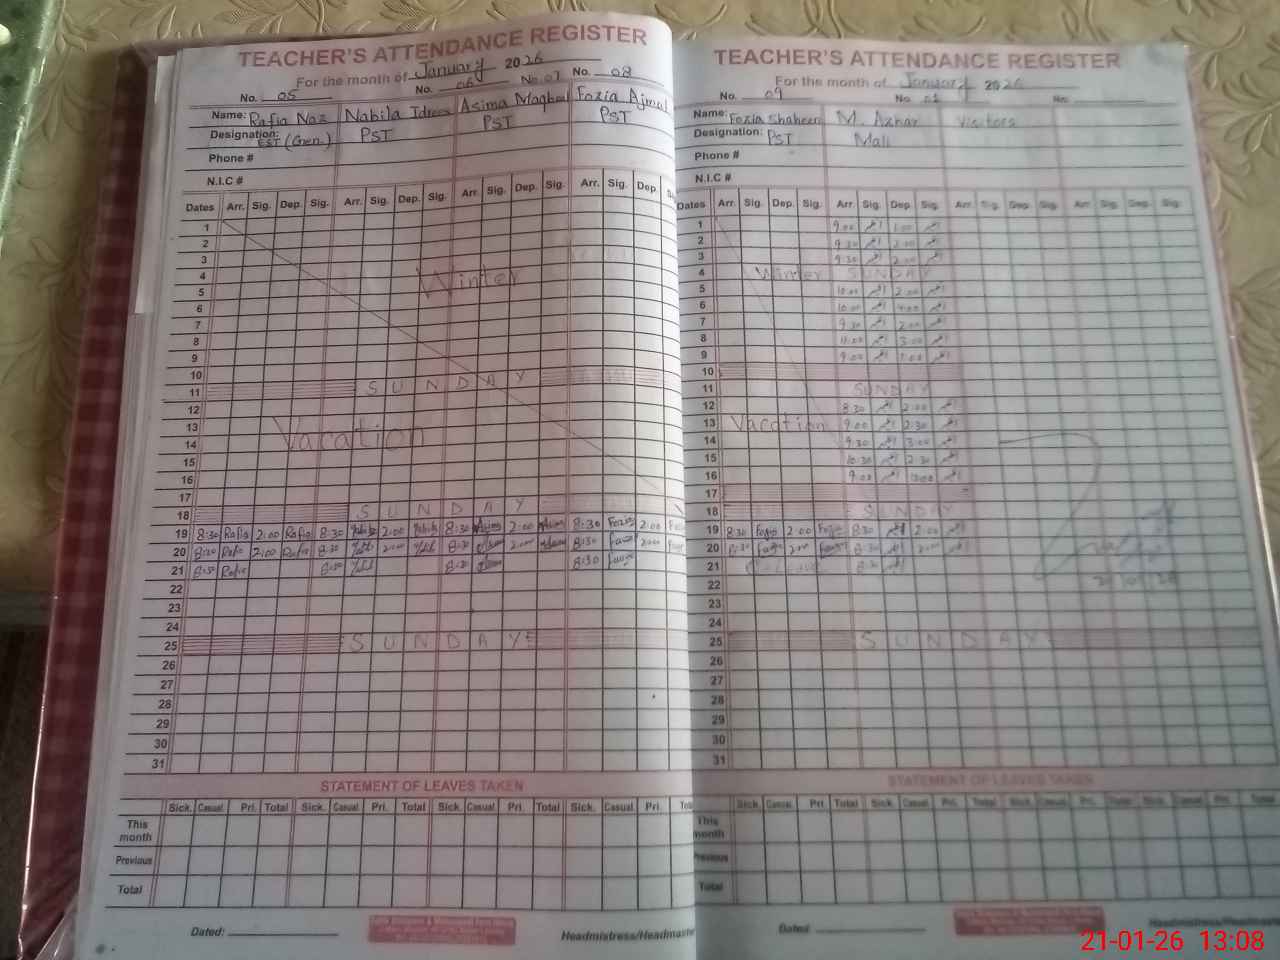 TEACHER'S ATTENDANCE REGISTER
For the month of January 2026
No. 05 No. 06 No. 07 No. 08
Name: Rafia Naz Nabila Idrees Asima Maqbool Fozia Ajmal
Designation: EST (Gen.) PST PST PST
Phone #
N.I.C #
Dates Arr. Sig. Dep. Sig. Arr. Sig. Dep. Sig. Arr. Sig. Dep. Sig. Arr. Sig. Dep.
1
2
3
4 Winter
5
6
7
8
9
10
11 SUNDAY
12
13 Vacation
14
15
16
17
18 SUNDAY
19 8:30 Rafia 2:00 Rafia 8:30 2:00 8:30 2:00 8:30 Fozia 2:00
20 8:30 Rafia 2:00 Rafia 8:30 2:00 8:30 2:00 8:30 2:00
21 8:30 Rafia 8:30 8:30 8:30
22
23
24
25 SUNDAY
26
27
28
29
30
31
STATEMENT OF LEAVES TAKEN
Sick. Casual Pri. Total Sick. Casual Pri. Total Sick. Casual Pri. Total Sick. Casual Pri.
This month
Previous
Total
Dated:
Headmistress/Headmaster
TEACHER'S ATTENDANCE REGISTER
For the month of January 2026
No. 09 No. 01 No.
Name: Fozia Shaheen M. Azhar Visitors
Designation: PST Mali
Phone #
N.I.C #
Dates Arr. Sig. Dep. Sig. Arr. Sig. Dep. Sig. Arr. Sig. Dep. Sig. Arr. Sig. Dep. Sig.
1 9:00 1:00
2 9:30 2:00
3 9:30 2:00
4 Winter SUNDAY
5 10:00 2:00
6 10:00
7 9:30 2:00
8 11:00 3:00
9 9:00 1:00
10
11 SUNDAY
12 8:30 2:00
13 Vacation 9:00 2:30
14 9:30 3:00
15 10:30 2:30
16 9:00
17
18 SUNDAY
19 8:30 Fozia 2:00 Fozia 8:30 2:00
20 8:30 2:00 8:30 2:00
21 Leave 8:30
22
23
24
25 SUNDAY
26
27
28
29
30
31
STATEMENT OF LEAVES TAKEN
Sick. Casual Pri. Total Sick. Casual Pri. Total Sick. Casual Pri. Total Sick. Casual Pri. Total
This month
Previous
Total
Dated
Headmistress/Headmaster
21-01-26 13:08